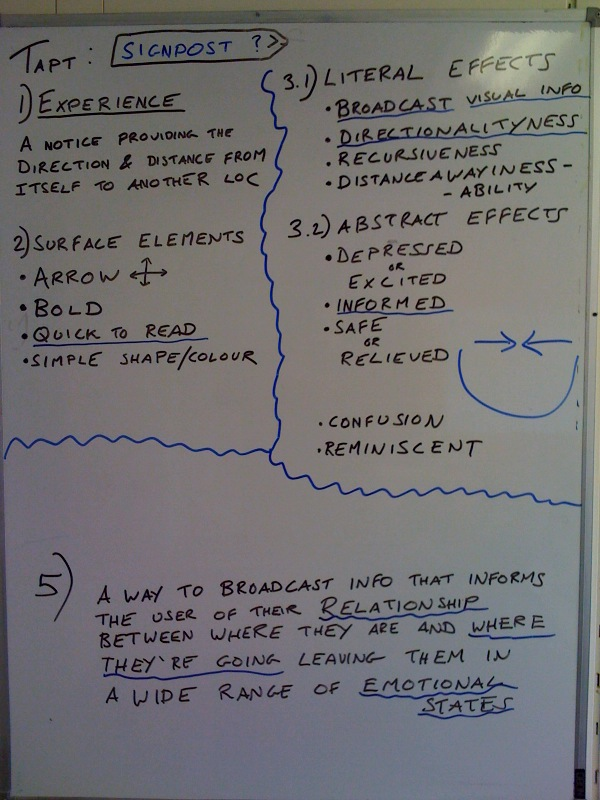 TAPT: SIGNPOST ?>
1) EXPERIENCE
A NOTICE PROVIDING THE
DIRECTION & DISTANCE FROM
ITSELF TO ANOTHER LOC
2) SURFACE ELEMENTS
• ARROW
• BOLD
• QUICK TO READ
• SIMPLE SHAPE/COLOUR
3.1) LITERAL EFFECTS
• BROADCAST VISUAL INFO
• DIRECTIONALITYNESS
• RECURSIVENESS
• DISTANCEAWAYINESS -
- ABILITY
3.2) ABSTRACT EFFECTS
• DEPRESSED
OR
EXCITED
• INFORMED
• SAFE
OR
RELIEVED
• CONFUSION
• REMINISCENT
5) A WAY TO BROADCAST INFO THAT INFORMS
THE USER OF THEIR RELATIONSHIP
BETWEEN WHERE THEY ARE AND WHERE
THEY'RE GOING LEAVING THEM IN
A WIDE RANGE OF EMOTIONAL
STATES